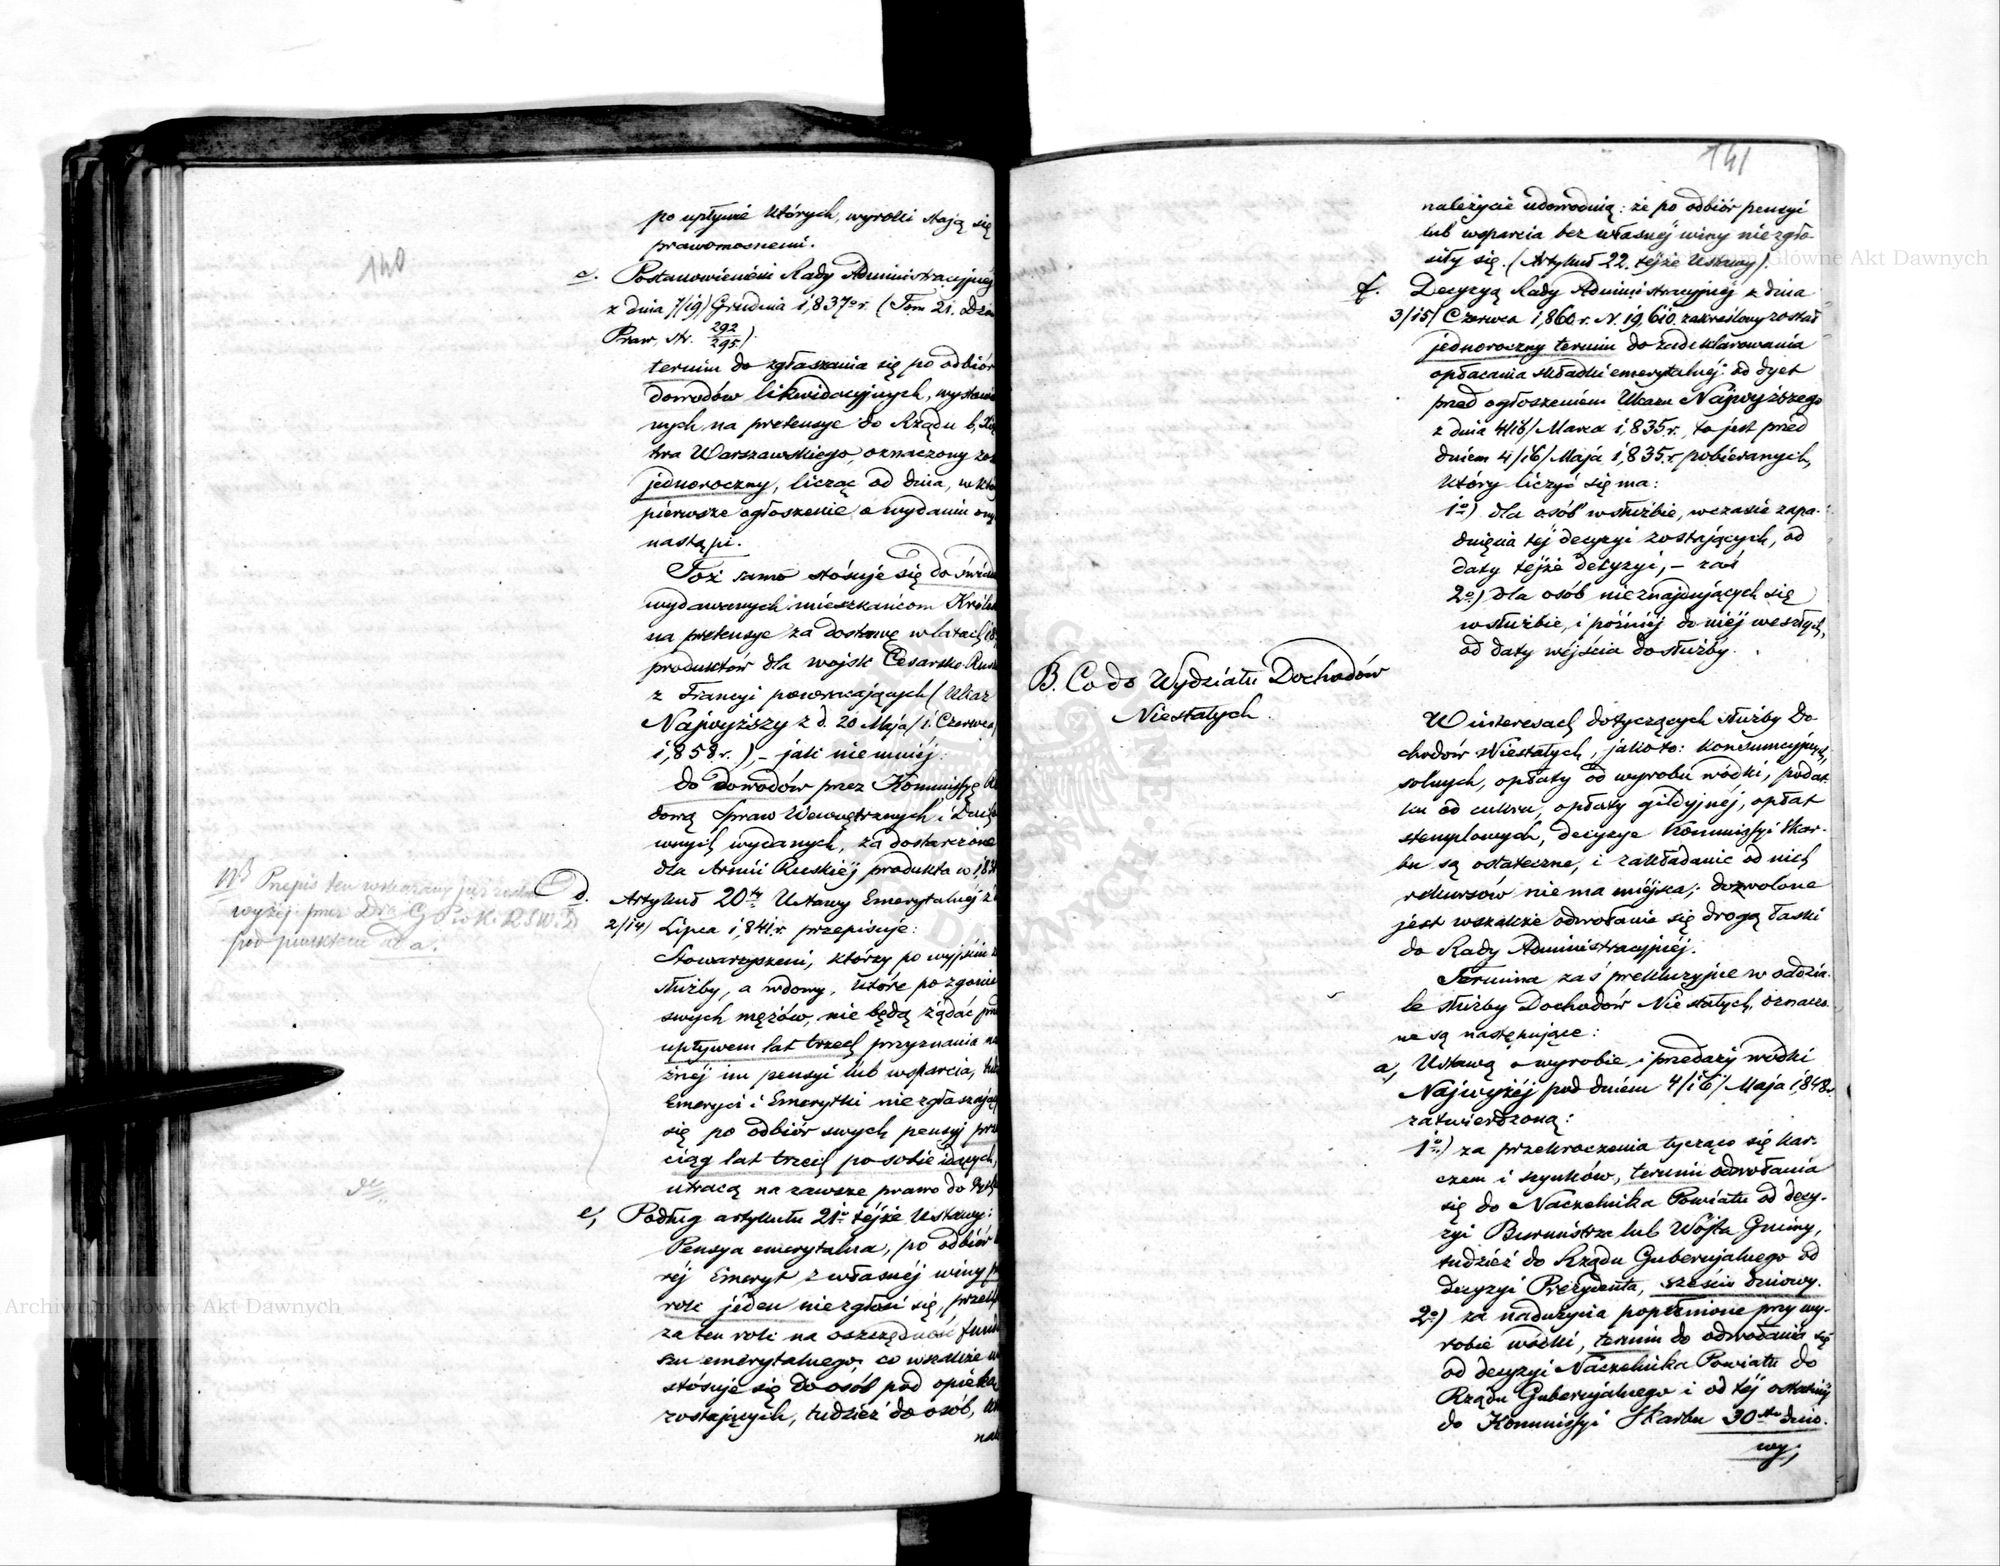 140
po upłynie których, wyroki stają się
prawomocnemi.
c. Postanowieniem Rady Administracyjnej
z dnia 7/19/ Grudnia 1,837o r. (Tom 21. Dzen
Praw, str. 292/295.)
termin do zgłaszania się po odbiór
dowodów likwidacyjnych, wystawio
nych na pretensye do Rządu b,
twa Warszawskiego, oznaczony zos
jednoroczny, licząc od dnia, w któ
pierwsze ogłoszenie o wydaniu
nastąpi.
Toż samo stosuje się do świad
wydawanych mieszkańcom Króles
na pretensye za dostawę w latach
produktów dla wojsk Cesarsko-Rus
z Francyi powracających (Ukaz
Najwyższy z d. 20 Maja/1 Czerwca
1,858 r.),- jak niemniéj:
do dowodów przez Kommissyę
dową Spraw Wewnętrznych i Duch
wnych wydanych, za dostarczone
dla Armii Ruskiéj produkta w
d. Artykuł 20ty Ustawy Emerytalnéj z
2/14/ Lipca 1,841. r. przepisuje:
Stowarzyszeni, którzy po wyjściu z
służby, a wdowy, które po zgonie
swych mężów, nie będą żądać
upływem lat trzech przyznania
żnéj im pensyi lub wsparcia,
Emeryci i Emerytki nie zgłaszają
się po odbiór swych pensyj prz
ciąg lat trzech po sobie idących,
utracą na zawsze prawo do
e, Podług artykułu 21o téjże Ustawy:
Pensya emerytalna, po odbiór
réj Emeryt z własnéj winy
rok jeden nie zgłosi się,
za ten rok na oszczędność fun
szu emerytalnego; co wszakże
stósuje się do osób pod opieką
zostających, tudzież do osób,
nale
NB Przepis ten wskazany już został
wyżéj przez
pod punktem a.
141
należycie udowodnią: że po odbiór pensyi
lub wsparcia bez własnéj winy nie zgło-
siły się. (Artykuł 22. téjże Ustawy).
f. Decyzyą Rady Administracyjnéj z dnia
3/15/ Czerwca 1,860 r. N. 19,610. zakreślony został
jednoroczny termin do zadeklarowania
opłacania składki emerytalnéj od dyet
przed ogłoszeniem Ukazu Najwyższego
z dnia 4/16/ Marca 1,835. r., to jest przed
dniem 4/16/ Maja 1,835. r. pobieranych,
który liczyć się ma:
1o) dla osób w służbie, w czasie zapa-
dnięcia téj decyzyi zostających, od
daty téjże decyzyi, - zaś
2o) dla osób nieznajdujących się
w służbie, i późniéj do niéj weszłych,
od daty wéjścia do służby.
B. Co do Wydziału Dochodów
Niestałych.
W interesach dotyczących służby Do-
chodów Niestałych, jako to: konsumcyjnych,
solnych, opłaty od wyrobu wódki, podat
ku od cukru, opłaty gildyjnéj, opłat
stemplowych, decyzye Kommissyi Skar-
bu są ostateczne, i zakładanie od nich
rekursów nie ma miéjsca; dozwolone
jest wszakże odwołanie się drogą łaski
do Rady Administracyjnéj.
Termina zaś prekluzyjne w oddzia-
le służby Dochodów Niestałych, oznaczo-
ne są następujące:
a, Ustawą o wyrobie i przedaży wódki
Najwyżéj pod dniem 4/16/ Maja 1,848 r.
zatwierdzoną:
1o) za przekroczenia tyczące się kar-
czem i szynków, termin odwołania
się do Naczelnika Powiatu od decy-
zyi Burmistrza lub Wójta Gminy,
tudzież do Rządu Gubernjalnego od
decyzyi Prezydenta, sześcio dniowy.
2o) za nadużycia popełnione przy wy-
robie wódki, termin do odwołania się
od decyzyi Naczelnika Powiatu do
Rządu Gubernjalnego i od téj ostatniéj
do Kommissyi Skarbu 30sto dnio-
wy;
Archiwum Główne Akt Dawnych
Archiwum Główne Akt Dawnych